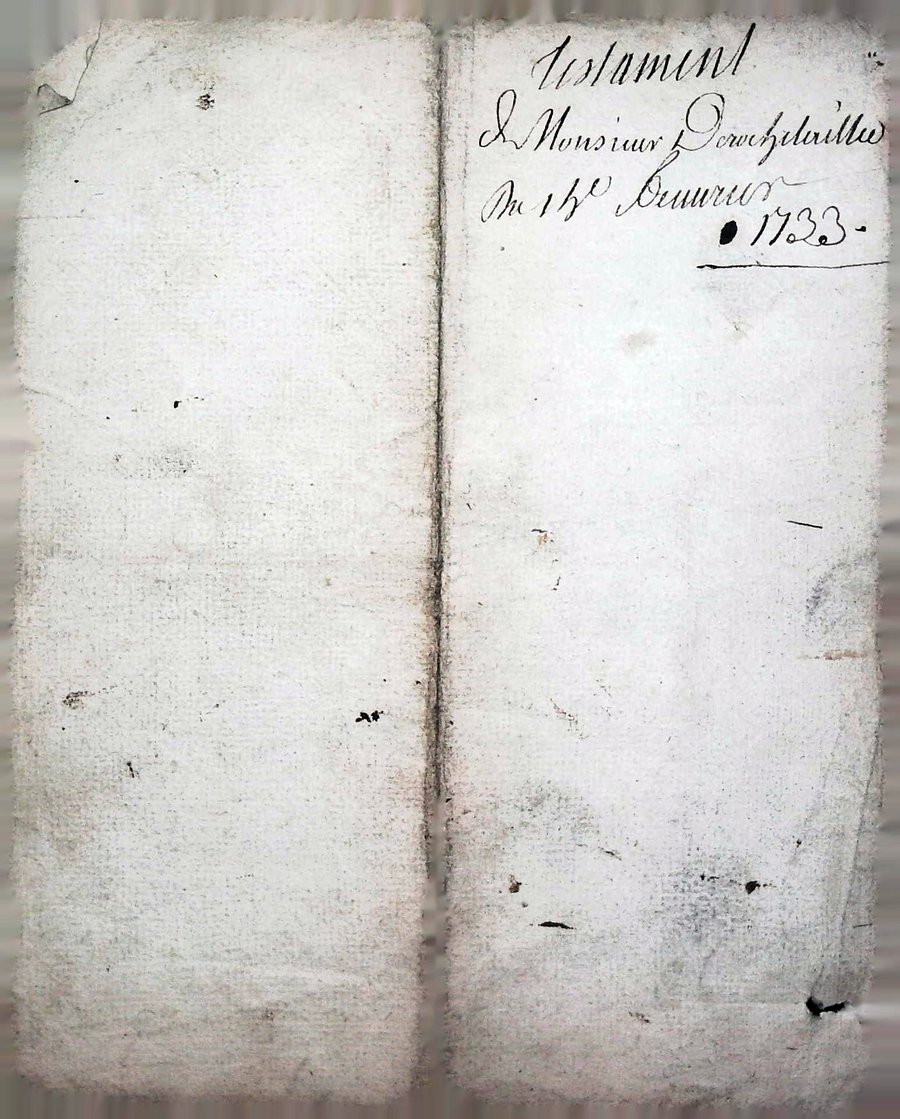 Testament
de Monsieur Derochebrillée
Du 14e feuvrier
1733.